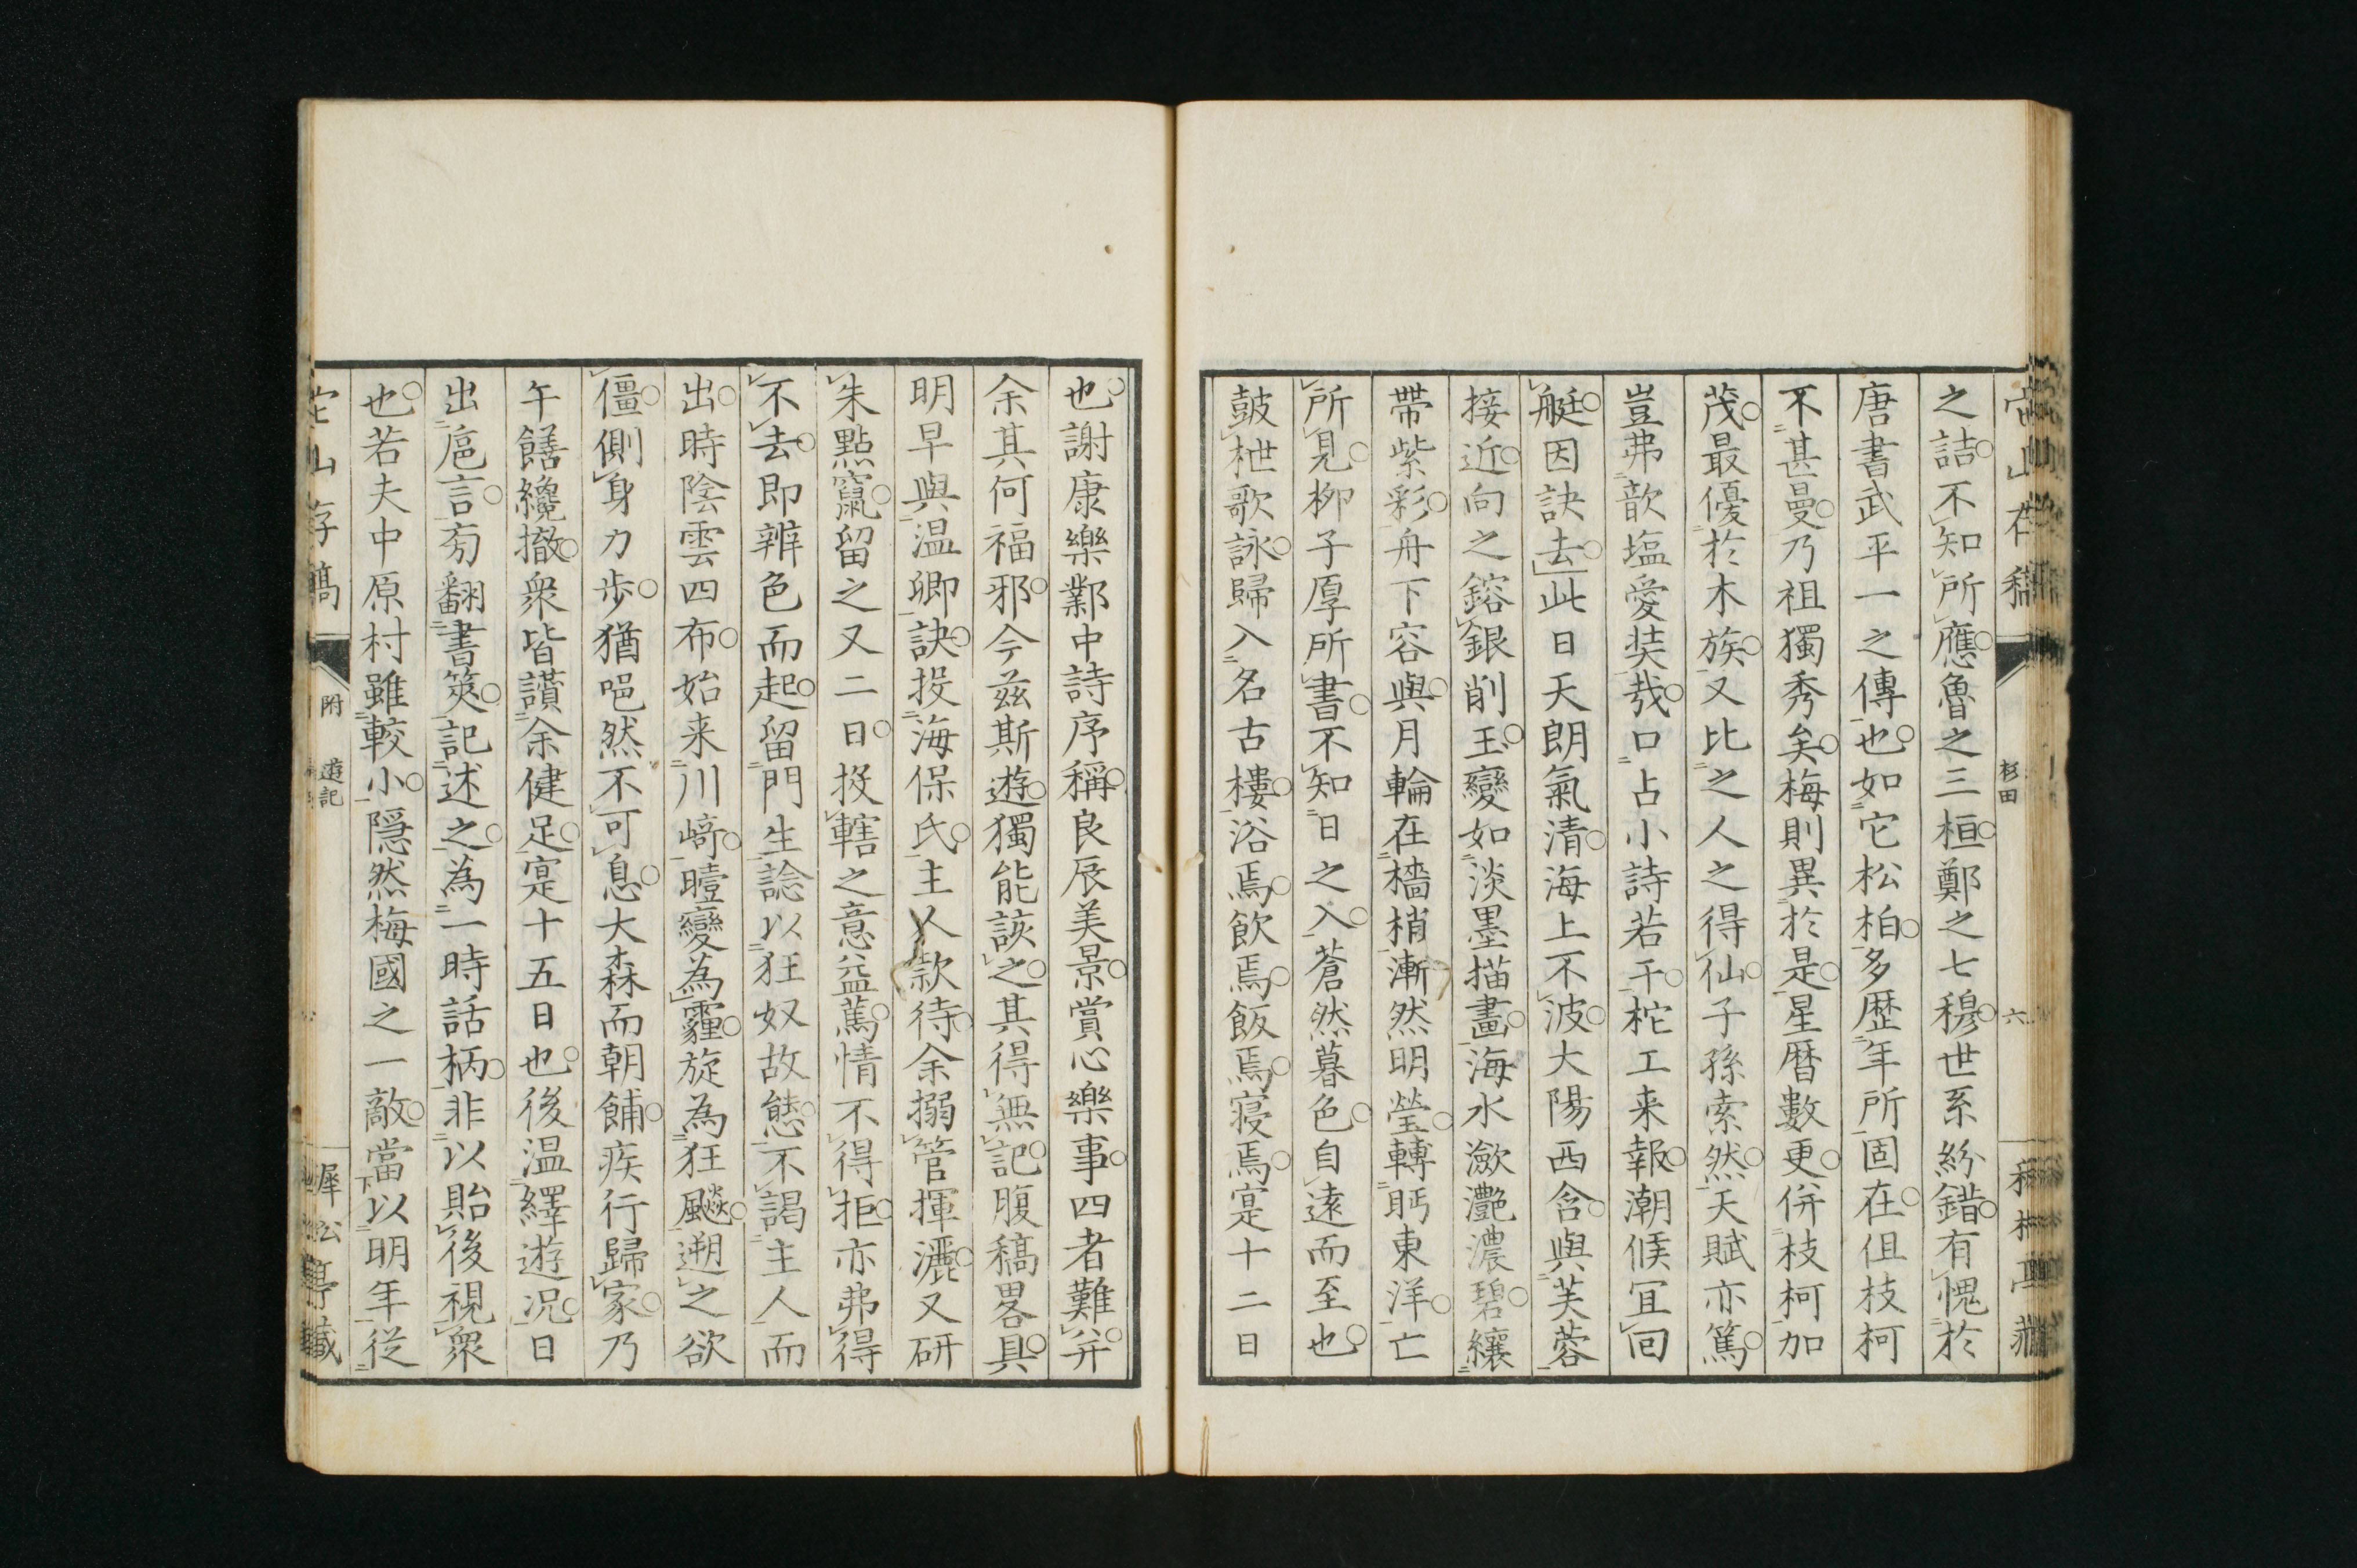 之詰不知所應魯之三桓鄭之七穆世系紛錯有愧於
唐書武平一之傳也如它松柏多歴年所固在但枝柯
不甚曼乃祖獨秀矣梅則異於是星曆數更併枝柯加
茂最優於木族又比之人之得仙子孫索然天賦亦篤
豈弗歆塩愛奘哉口占小詩若干柁工来報潮候宜回
艇因訣去此日天朗氣清海上不波大陽西含與芙蓉
接近向之鎔銀削玉變如淡墨描畫海水瀲灔濃碧纕
帶紫彩舟下容與月輪在檣梢漸然明瑩轉眄東洋亡
所見柳子厚所書不知日之入蒼然暮色自遠而至也
鼓枻歌詠歸入名古樓浴焉飲焉飯焉寝焉寔十二日
也謝康樂鄴中詩序稱良辰美景賞心樂事四者難并
余其何福邪今兹斯遊獨能該之其得無記腹稿畧具
明早與温卿訣投海保氏主人款待余搦管揮灑又研
朱點竄留之又二日投轄之意益篤情不得拒亦弗得
不去即辨色而起留門生諗以狂奴故態不謁主人而
出時陰雲四布始来川﨑曀變為霾旋為狂飈遡之欲
僵側身力歩猶唈然不可息大森而朝餔疾行歸家乃
午饍纔撤衆皆讃余健足寔十五日也後温繹遊况日
出巵言旁翻書筴記述之為一時話柄非以貽後視衆
也若夫中原村雖較小隠然梅國之一敵當以明年従
杉田
六
存稿
附
遊記
松亭藏